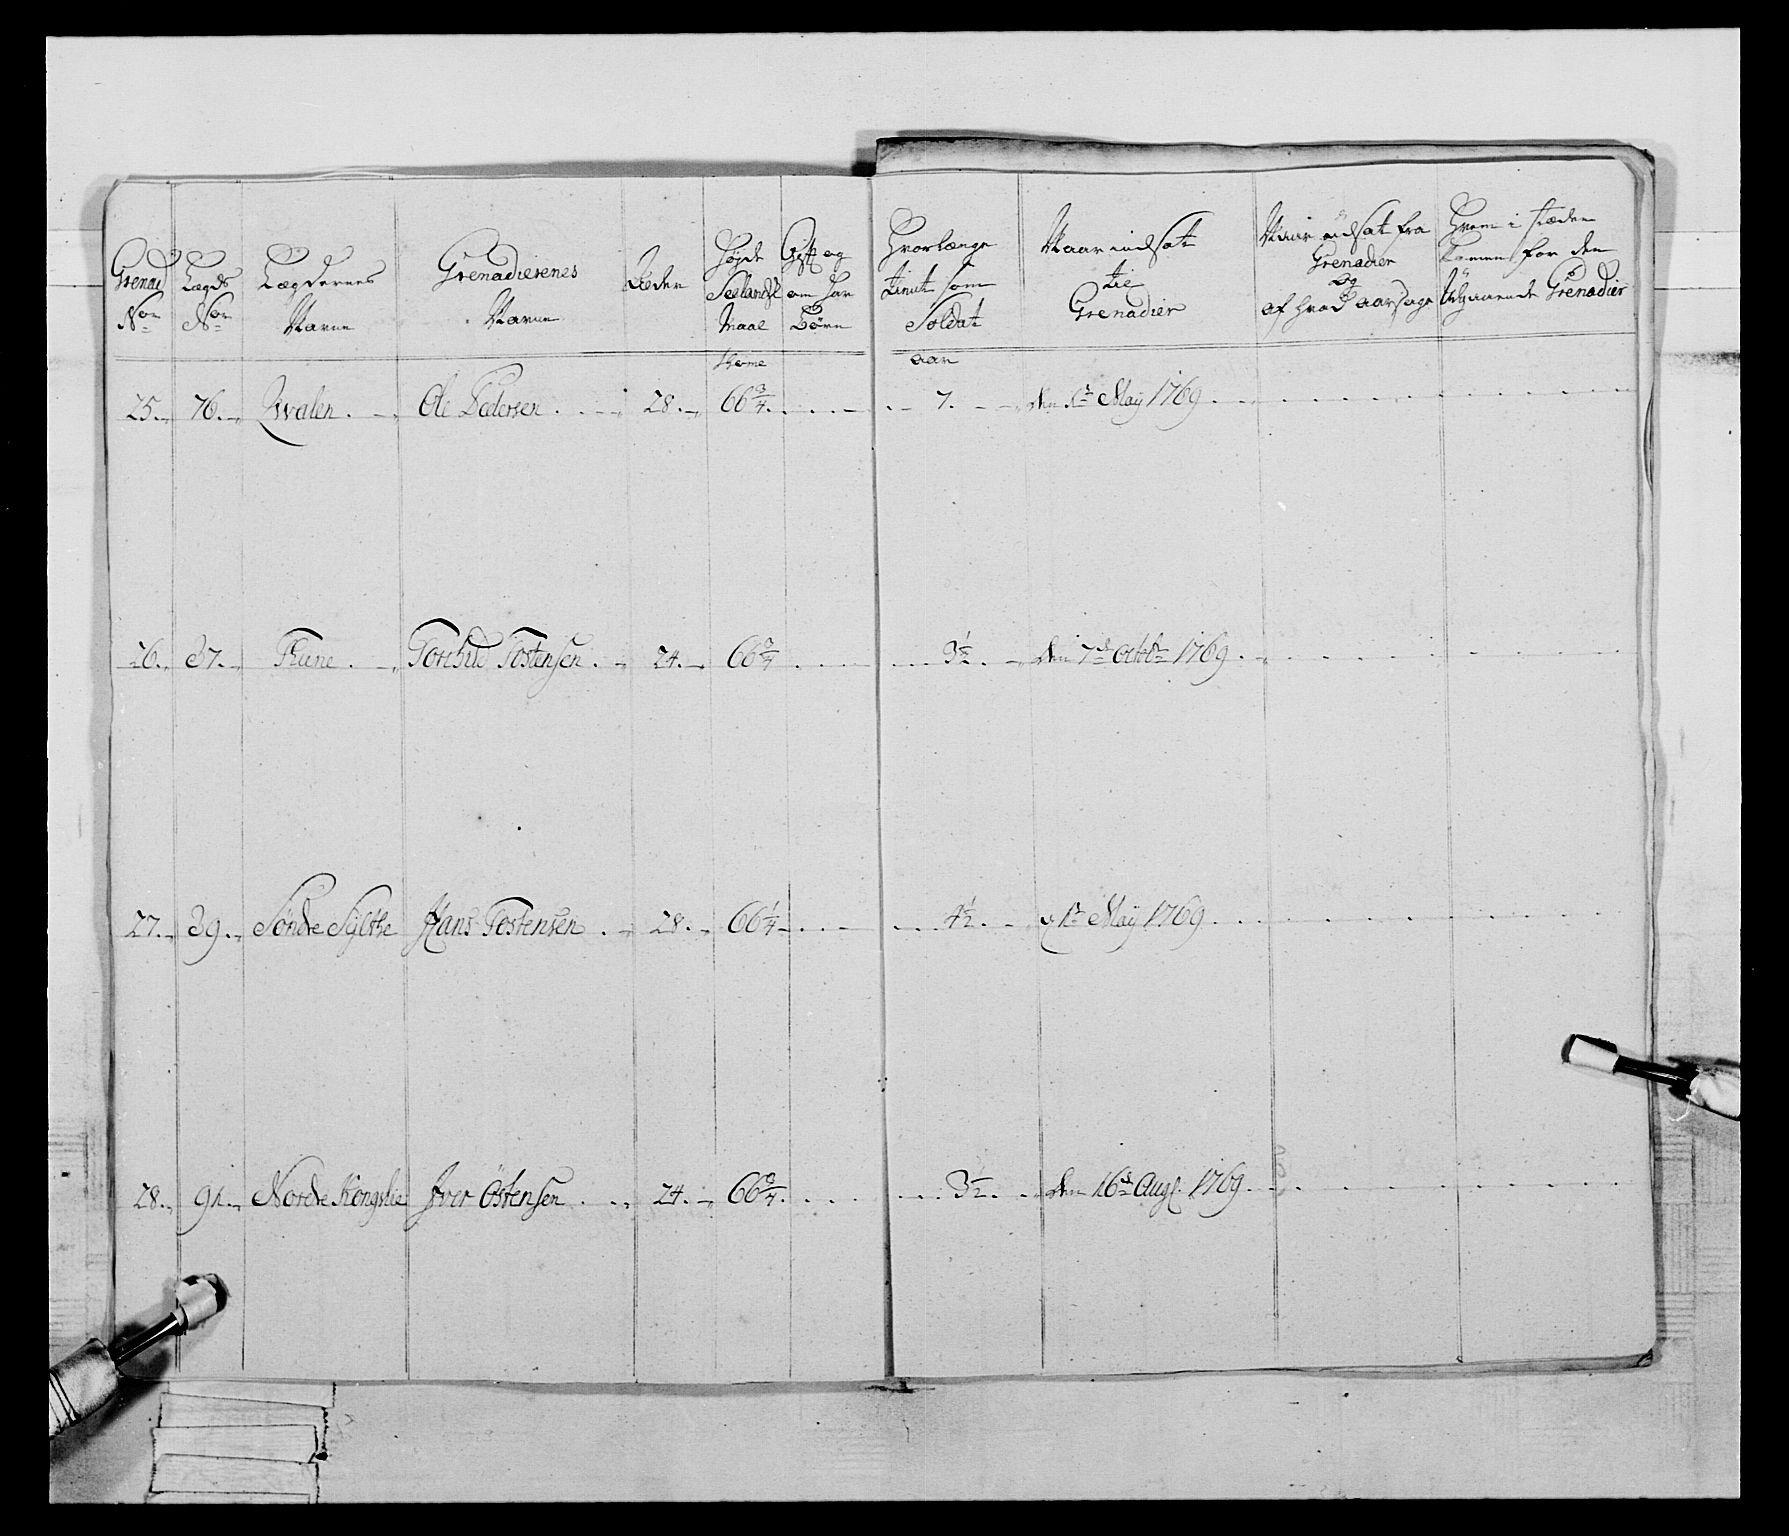 Grenad Nor | Lægds Nor | Lægdernes Navne | Grenadierenes Navne | Alder | Højde Seelandsk Maal | Gift og om har Børn | Hvorlænge tient som Soldat | Naar indsat til Grenadier | Naar udsat fra Grenadier og af hvad aarsage | Hvem i stæden kommen for den Udgaaende Grenadier
Tome | aar
25. | 76. | Qvalen. | Ole Pedersen | 28. | 66 3/4. | 7. | den 1te Maÿ 1769
26. | 87. | Thune. | Tostensen. | 24. | 66 3/4 | 3 1/2. | den 7de octbr 1769.
27. | 89. | Søndre Sÿlthe | Hans Tostensen. | 28. | 66 1/4 | 4 1/2. | 1te Maÿ 1769.
28. | 91. | Nordre Kongslie | Iver Ostensen. | 24. | 66 3/4. | 3 1/2. | den 16de Aug. 1769.